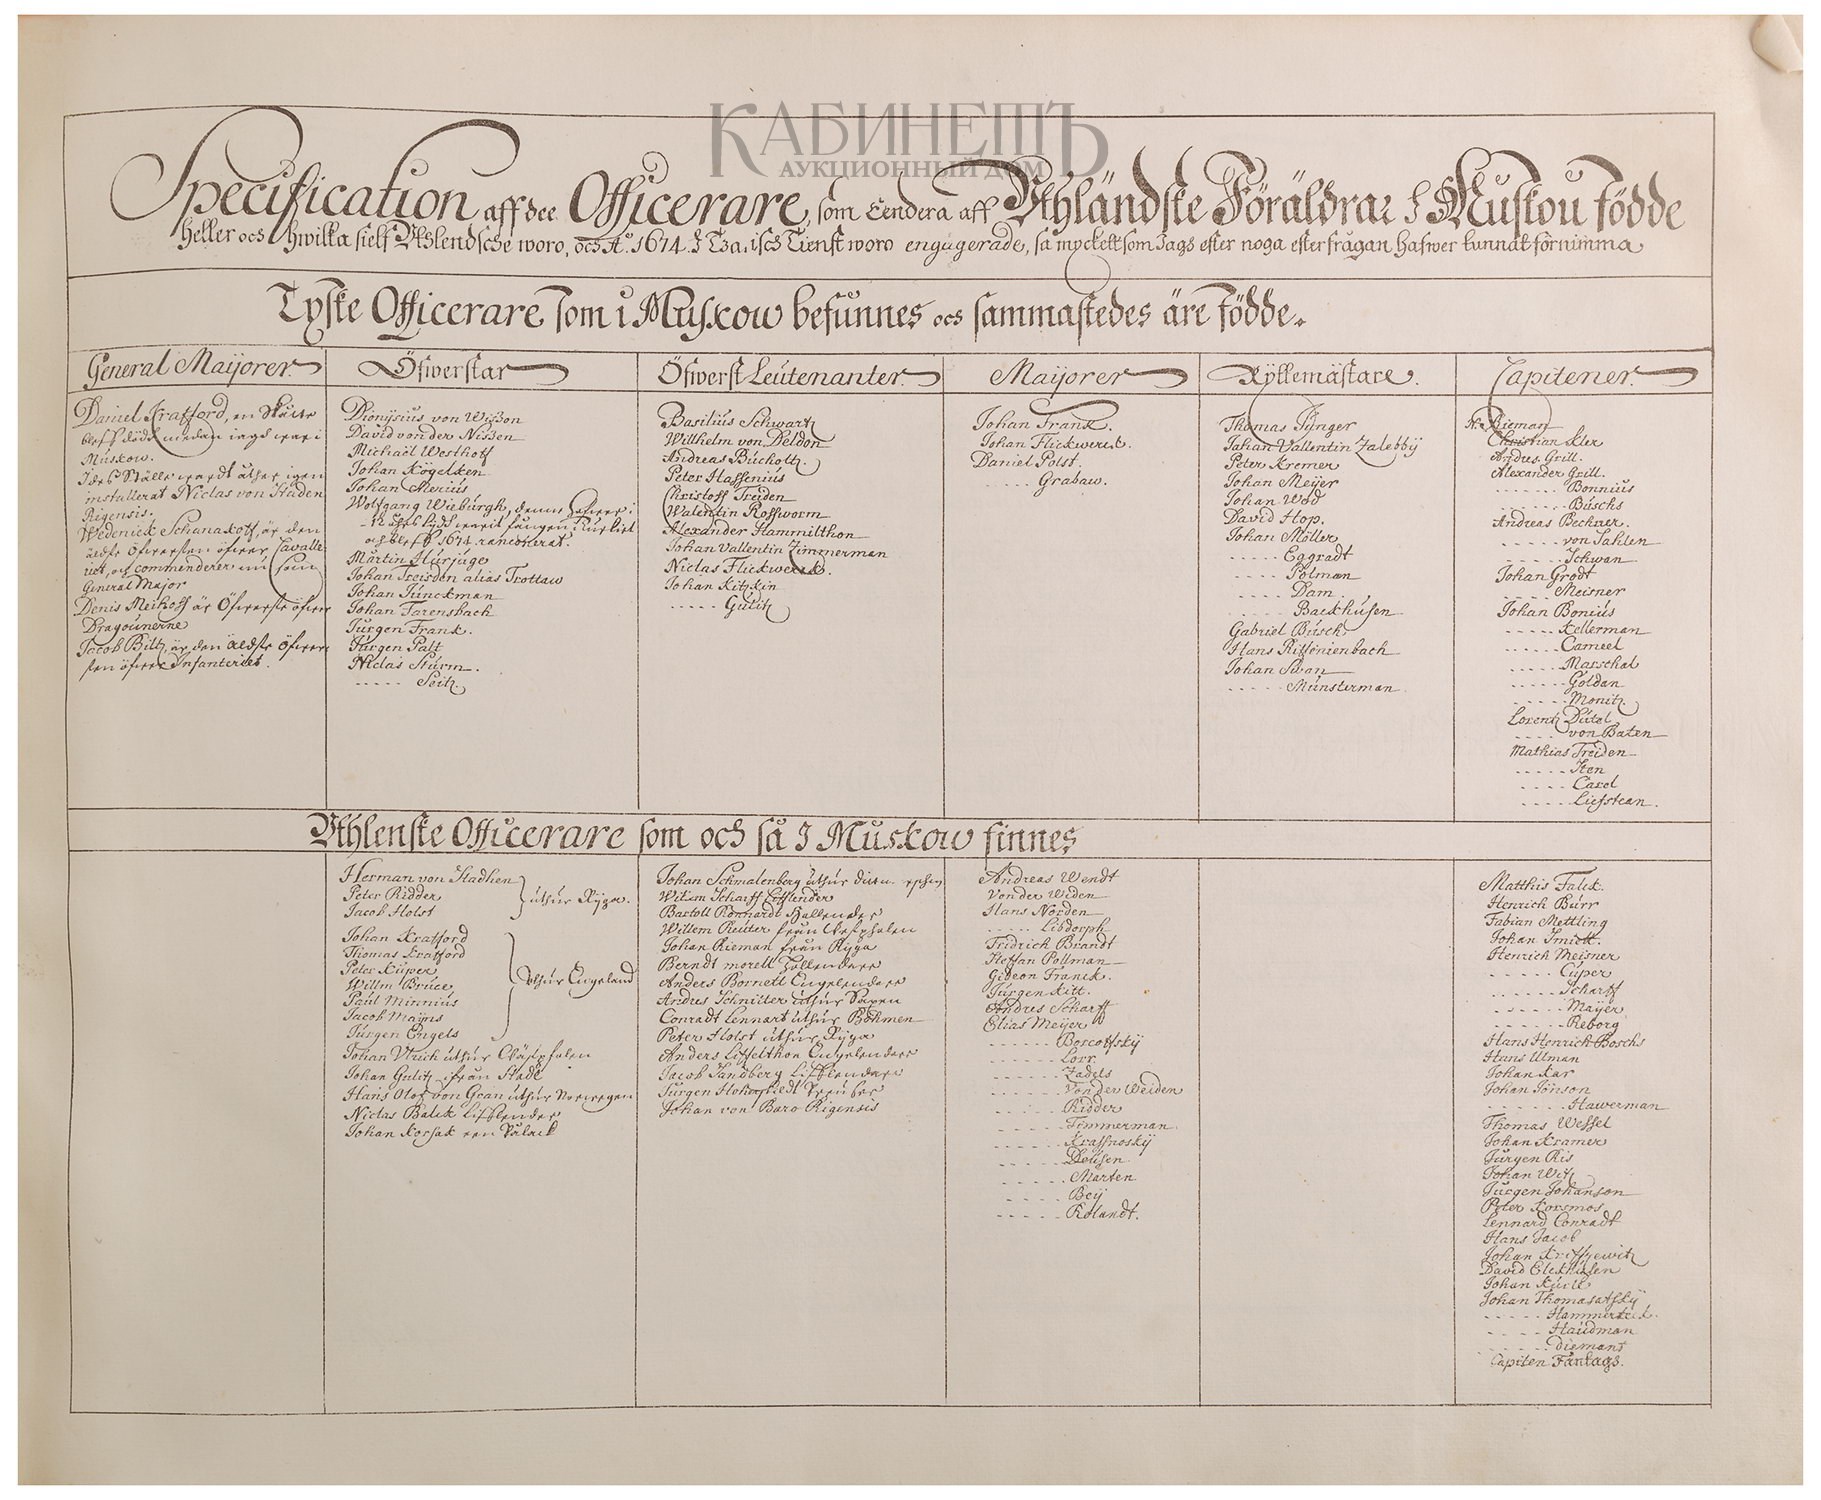 КАБИНЕТЪ
АУКЦИОННЫЙ ДОМ
Specification aff dee Officerare, som Eendera aff Uthländske Föräldrar I Muskou födde
heller och hwilka sielf Uthlendsche woro, och A:o 1674. I Tzarisch Tienst woro engagerade, så myckett som Jagh efter noga efterfrågan hafwer kunnat förnimma
Tyske Officerare som i Muskow befunnes och sammastedes äre födde.
General Maijorer.
Daniel Krafford, en
död medan iagh war i
Muskow.
I des Ställe wardt åther igen
installerat Niclas von Staden
Rigensis.
Wedenick Schanakoff, är den
äldste Öfwersten öfwer Cavalle
riet, och commenderer nu som
General Major
Denis Meikoff är Öfwerste öfwer
Dragounerne
Jacob Biltz, är den äldste Öfwer
sten öfwer Infanteriet.
Öfwerstar
Dionysius von Wißon
David von der Nißen
Michaël Westhoff
Johan Kögelken
Johan Merius
Wolfgang Wieburgh, denne hafwer i
12 åhrs tydh warit fången
och bleff 1674 rancionerat.
Martin Hurjuge
Johan Treisden alias Trottaw
Johan Junckman
Johan Farensbach
Jurgen Frank.
Jurgen Palt
Niclas Sturm.
..... Seitz.
Öfwerst Leutenanter.
Basilius Schwartz
Willhelm von Deldon
Andreas Bucholtz.
Peter Hassenius
Christoff Treiden
Walentin Rossworm
Alexander Hammilthon
Johan Vallentin Zimmerman
Niclas Flickwerck.
Johan Kitzkin
..... Gulitz
Maijorer
Johan Frank.
Johan Flickwerck.
Daniel Polst.
..... Grabaw.
Ryttemästare.
Thomas Junger
Johan Vallentin Zalebby
Peter Kremer
Johan Meijer
Johan Wod
David Hop.
Johan Möller
..... Eggradt
.... Polman
..... Dam
...... Backhusen
Gabriel Busch
Hans Riffonienbach
Johan Swan
...... Munsterman
Capitener.
N. Rieman
Christian Kler
Andres Grill.
Alexander Grill.
....... Bonnius
....... Buschs
Andreas Beckner.
...... von Sahlen
...... Schwan
Johan Grodt
..... Meisner
Johan Bonius
..... Kellerman
...... Cameel
...... Marschal
...... Goldan
...... Monitz.
Lorentz Dutel
.... von Baten
Mathias Treiden
..... Iten
.... Carol
.... Liefstean.
Uthlenske Officerare som och så I Muskow finnes
Herman von Stadhen
Peter Ridder
Jacob Holst
uthur Ryga.
Johan Krafford
Thomas Krafford
Peter Kuper
Willm Bruce
Paul Minnius
Jacob Majus
Jurgen Engels
Uthur Engeland
Johan Utrich uthur Wästphalen
Johan Gulitz ifrån Stade
Hans Olof von Gran uthur Norwegen
Niclas Balck Lifflender
Johan Korsak een Polack
Johan Schmalenberg uthur
Witim Scharff Lifflender
Bartoll Rönnardt Hollender
Willem Reuter från Westphalen
Johan Rieman från Ryga
Berndt morell Hollendere
Anders Bornett Engelendere
Andres Schnitter uthur Saxen
Conradt Lennart uthur Bohmen
Peter Holst uthur Ryga
Anders Liffelthon Engelendere
Jacob Sandberg Lifflendere
Jurgen Hohorstedt Preusser
Johan von Baro Rigensis
Andreas Wendt
Von der Widen
Hans Norden
..... Libdorph
Fridrich Brandt
Steffan Pollman
Gideon Franck.
Jurgen Kitt.
Andres Scharff
Elias Meijer
...... Borcoffsky
...... Lorr
...... Zadels
...... Von der Weiden
...... Ridder
...... Timmerman
...... Krassnosky
...... Delisen
..... Marten
..... Beij
..... Rolandt.
Matthis Falck.
Henrich Burr
Fabian Mettling
Johan Smiott.
Henrich Meisner
...... Cuper
...... Scharff
...... Maijer
...... Reborg
Hans Henrich Boschs
Hans Ulman
Johan Kar
Johan Jonson
....... Hawerman
Thomas Wessel
Johan Kramer
Jurgen Ris
Johan Witz
Jurgen Johanson
Peter Korsmos
Lennard Conradt
Hans Jacob
Johan Kriffzewitz
David Elekhusen
Johan Kurtz
Johan Thomasatsky
..... Hammerteck.
..... Haudman
...... diemans
Capiten Fantags.